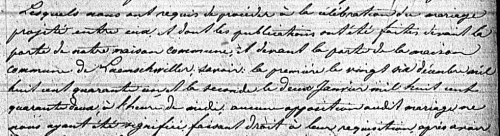 Lesquels nous ont requis de procéder à la célébration du mariage
projeté entre eux et dont les publications ont été faites devant la
porte de notre maison commune, et devant la porte de la maison
commune de Luemschwiller, savoir: la première le vingt six décembre mil
huit cent quarante un et la seconde le deux Janvier mil huit cent
quarante deux à l'heure de midi, aucune opposition audit mariage ne
nous ayant été signifiée, faisant droit à leur requisition, après avoir